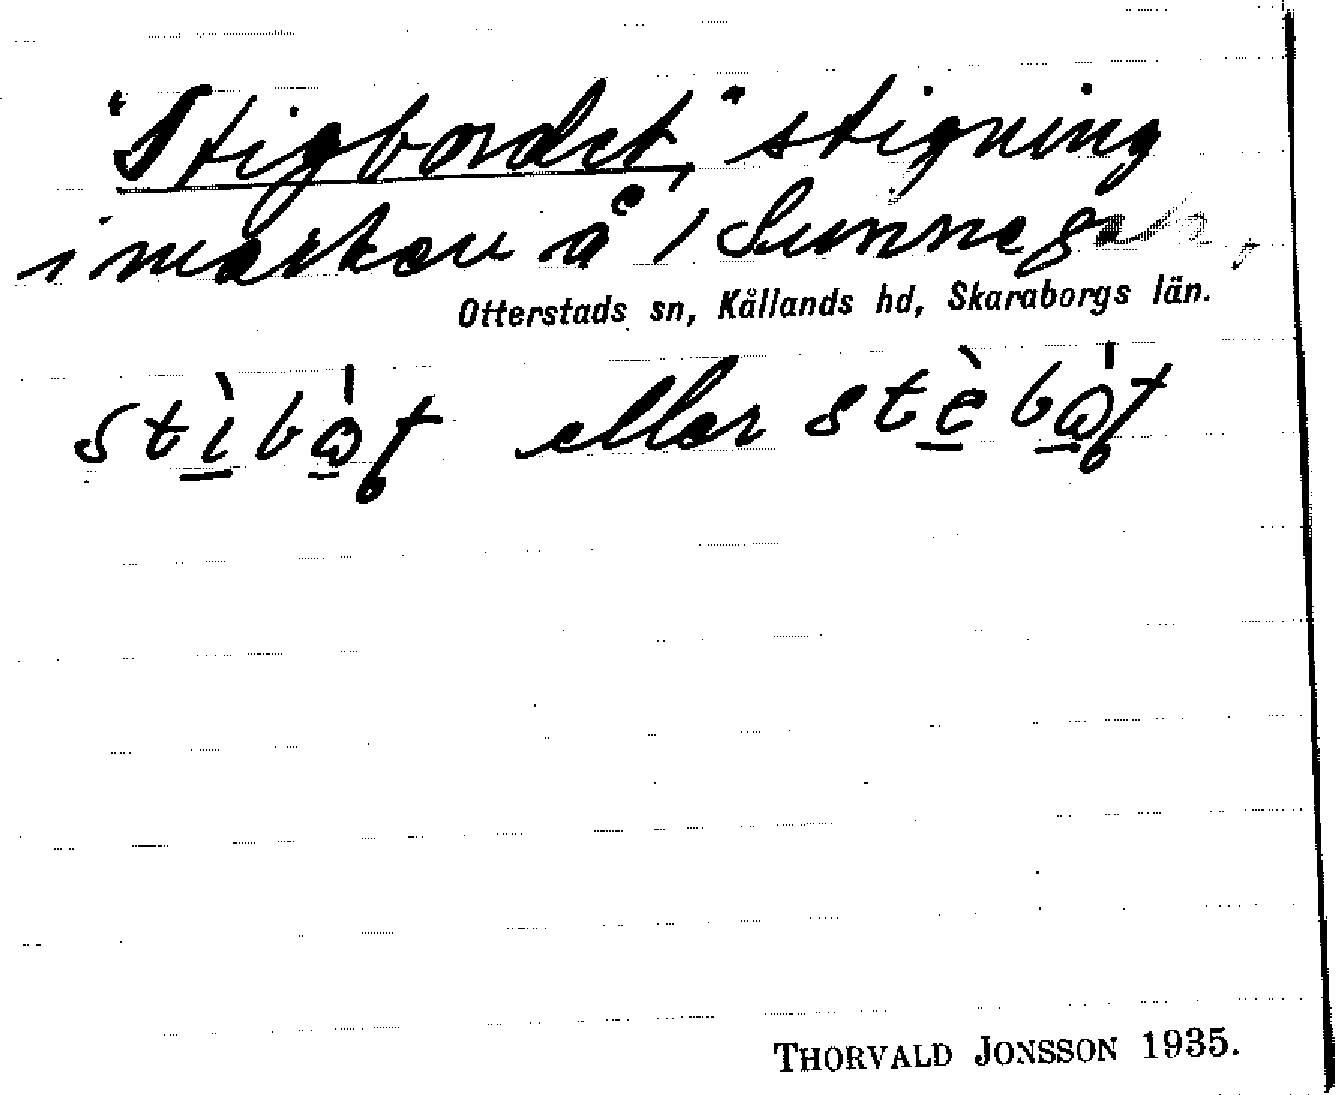 "Stigbordet," stigning
i marken å 1 Sunneg
Otterstads sn, Kållands hd, Skaraborgs län.
eller
THORVALD JONSSON 1935.